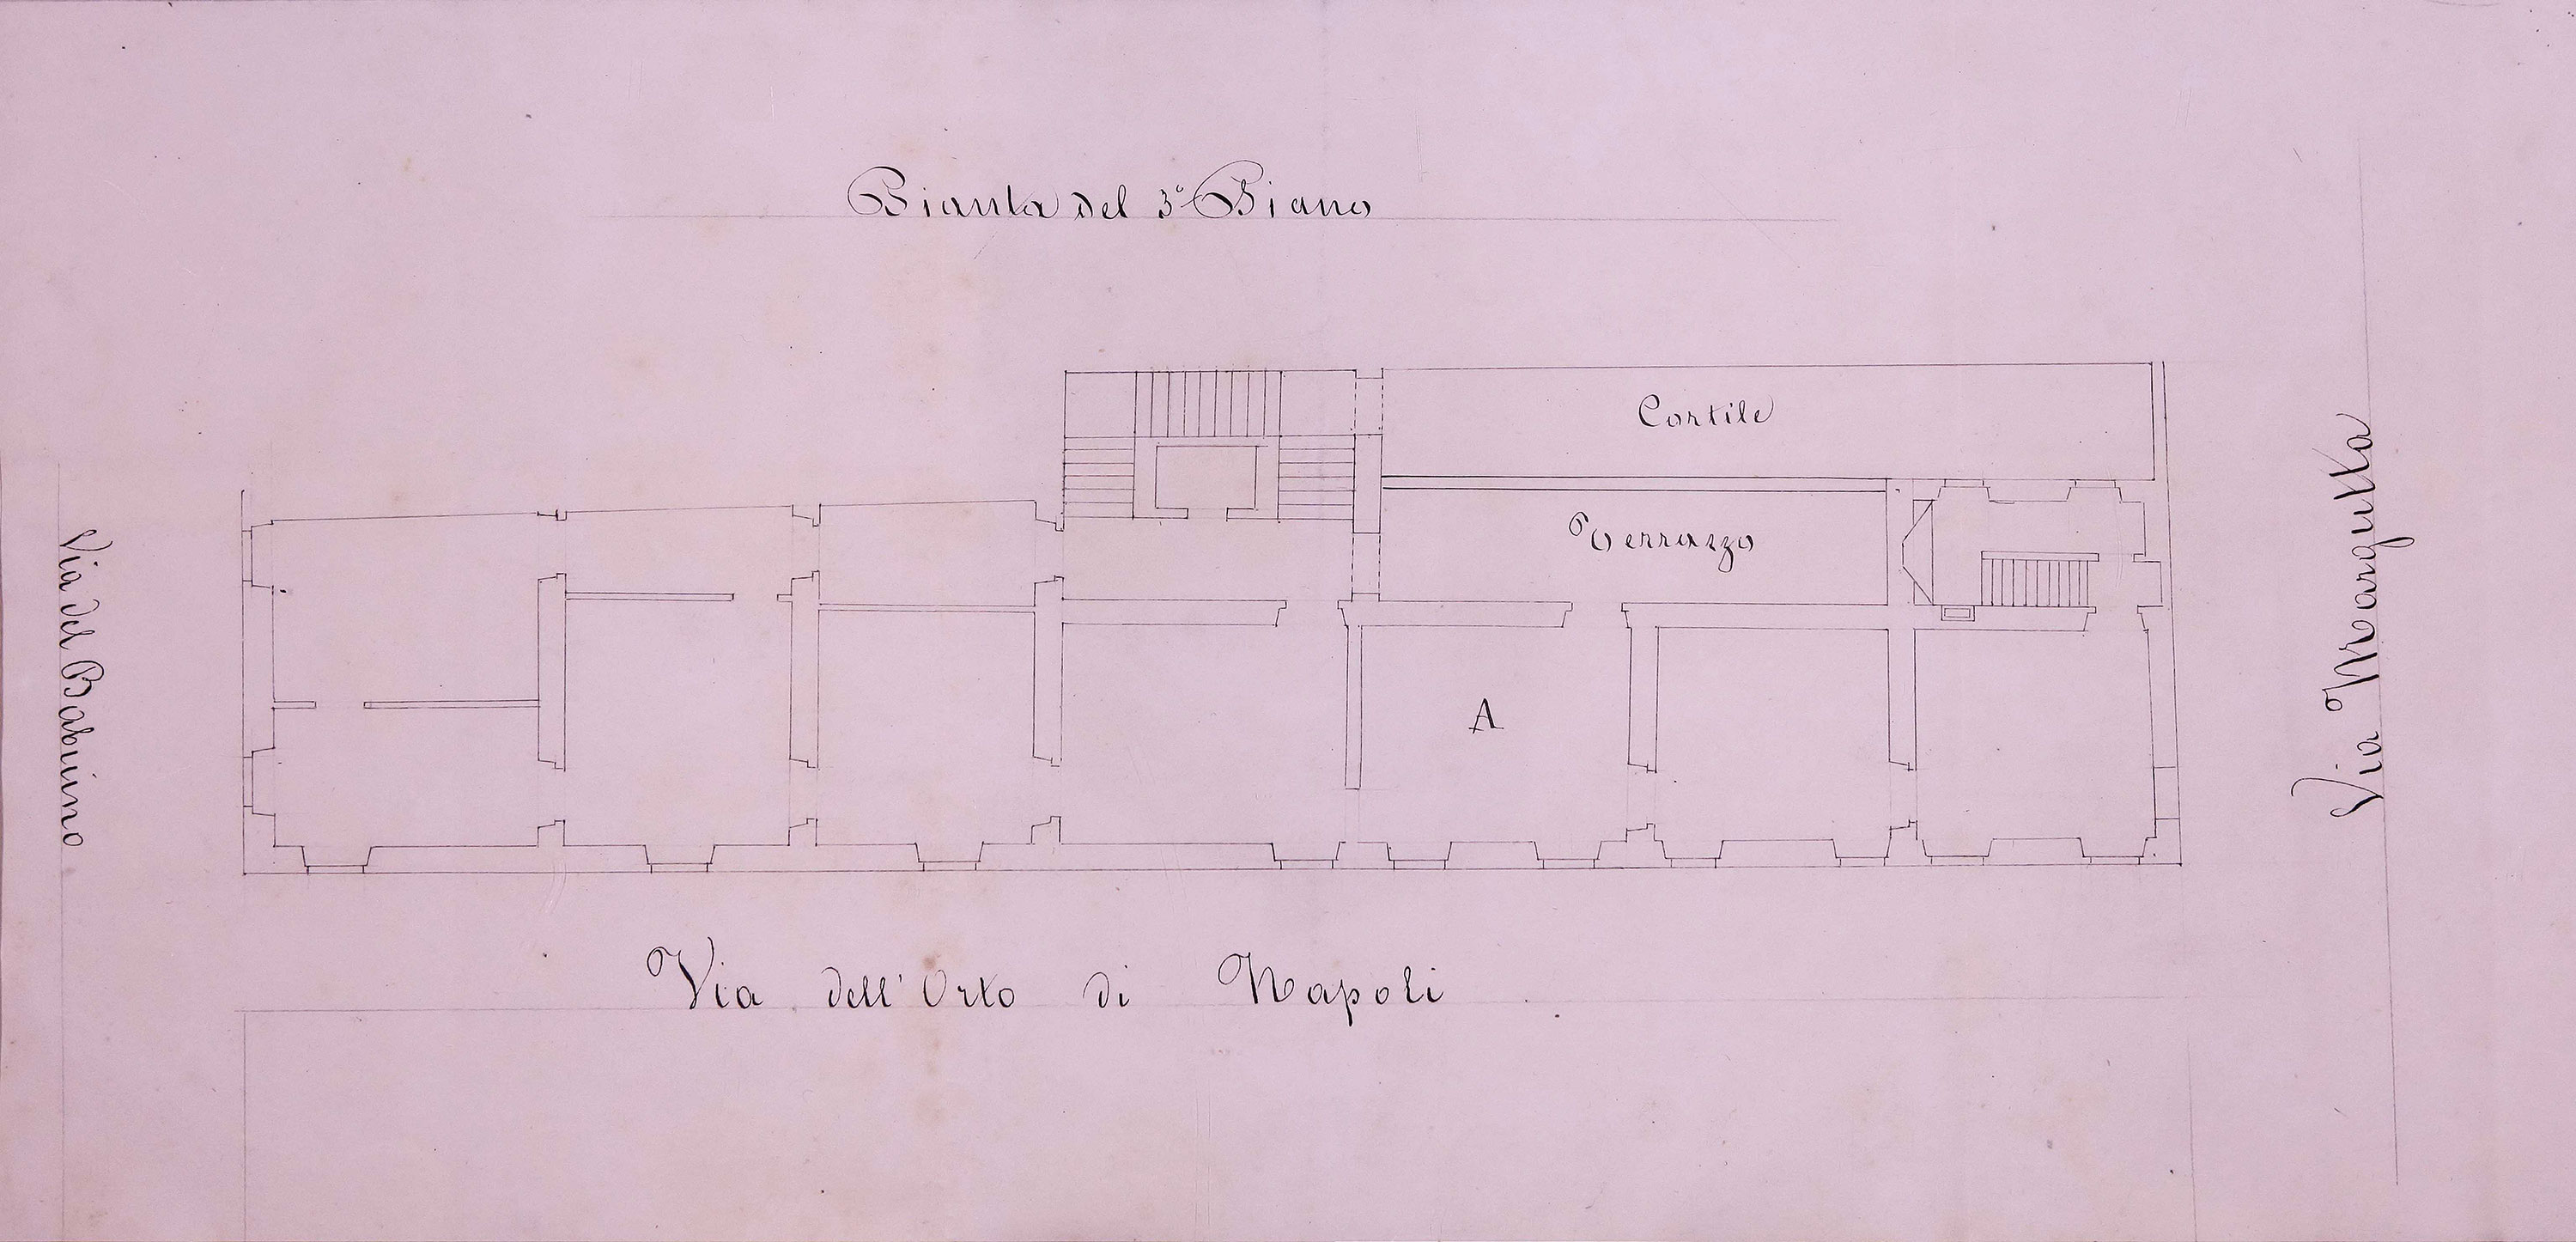 Pianta del 3° Piano
Cortile
Terrazzo
A
Via del Babuino
Via Margutta
Via dell'Orto di Napoli